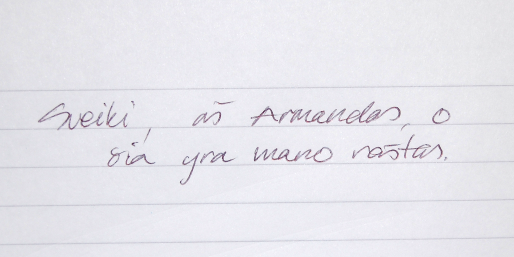 Sveiki, aš Armandas, o
šia yra mano raštas.